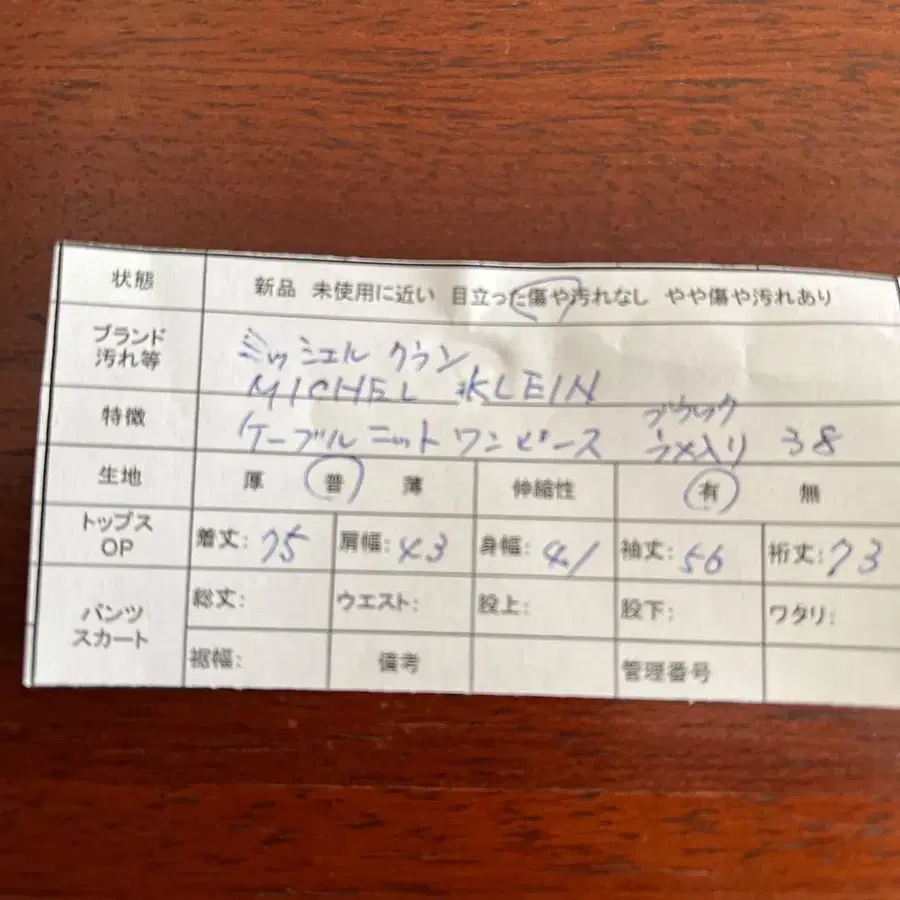 状態 新品 未使用に近い 目立った傷や汚れなし やや傷や汚れあり
ブランド 汚れ等 ミッシェル クラン
MICHEL KLEIN
特徴 ケーブルニットワンピース ブラック ラメ入り 38
生地 厚 普 薄 伸縮性 有 無
トップス OP 着丈:75 肩幅:43 身幅:41 袖丈:56 裄丈:73
パンツ スカート 総丈: ウエスト: 股上: 股下: ワタリ:
裾幅: 備考 管理番号